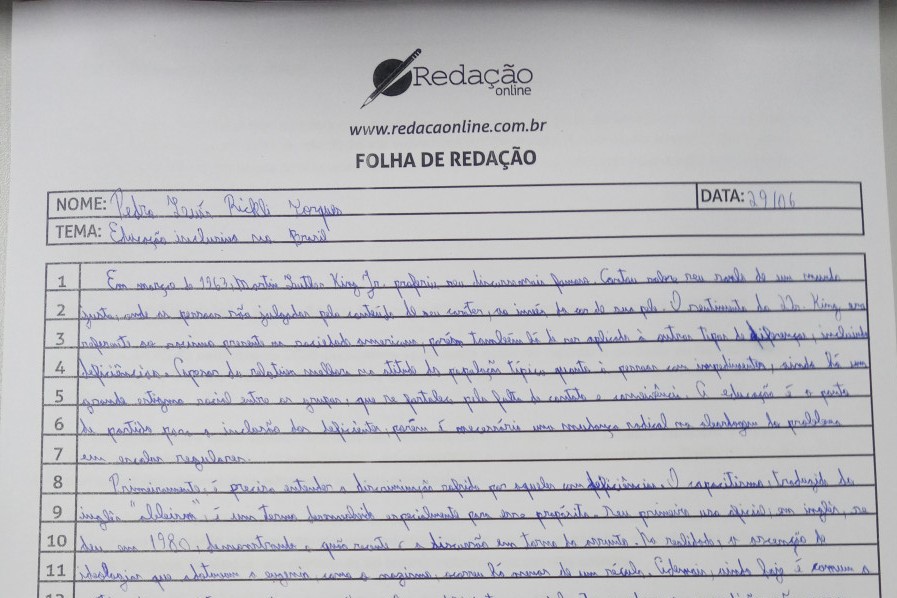 Redação
online
www.redacaonline.com.br
FOLHA DE REDAÇÃO
NOME: Pedro Rickli
DATA: 29/06
TEMA: Educação inclusiva no Brasil
1 Em março de 1963, Martin Luther King Jr. proferiu seu discurso mais famoso. Contou sobre seu sonho de um mundo
2 justo, onde as pessoas são julgadas pelo conteúdo de seu carater, ao invés da cor de sua pele. O sentimento do King era
3 referente ao racismo presente na sociedade americana, porém também há de ser aplicado à outros tipos de diferenças, incluindo
4 deficiências. Apesar da relativa melhora na atitude da população típica quanto a pessoas com impedimentos, ainda há um
5 grande estigma social entre os grupos, que se fortalece pela falta de contato e convivência. A educação é o ponto
6 de partida para a inclusão dos deficientes, porém é necessário uma mudança radical na abordagem do problema
7 em escolas regulares.
8 Primeiramente, é preciso entender a discriminação sofrida por aqueles com deficiência. O capacitismo, traduzido do
9 inglês "ableism", é um termo desenvolvido especialmente para esse propósito. Seu primeiro uso oficial, em inglês, se
10 deu em 1980, demonstrando o quão recente é a discussão em torno do assunto. Na realidade, a ascenção de
11 ideologias que adotavam a eugenia, como o nazismo, ocorreu há menos de um século. Ademais, ainda hoje é comum a